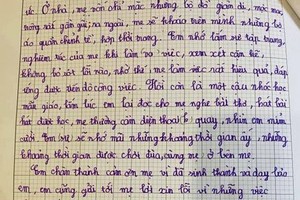 ức. Ở nhà, mẹ vẫn chỉ mặc những bộ đồ giản dị, mộc mạc
trông rất gần gũi, ra ngoài, mẹ sẽ khoác trên mình những bộ
áo quần chỉnh tề, hợp thời trang. Em nhớ lắm vẻ tập trung,
nghiêm túc của mẹ khi làm vở việc, xem xét cẩn kẽ,
không bỏ sót lỗi nào, nhờ thế, mẹ làm việc rất hiệu quả, đáp
ứng được tiến độ công việc. Hồi còn là một cậu nhóc học
mẫu giáo, tôi lúc em lại đọc cho mẹ nghe bài thơ, hát bài
hát được học, mẹ thường cầm điện thoại quay, nhìn em mỉm
cười. Em sẽ nhớ mãi những khoảng thời gian ấy, những
khoảng thời gian được chơi đùa, cùng mẹ ở bên mẹ.
Em chân thành cảm ơn mẹ vì đã sinh thành và dạy bảo
em, em cũng gửi tới mẹ lời xin lỗi vì những việc